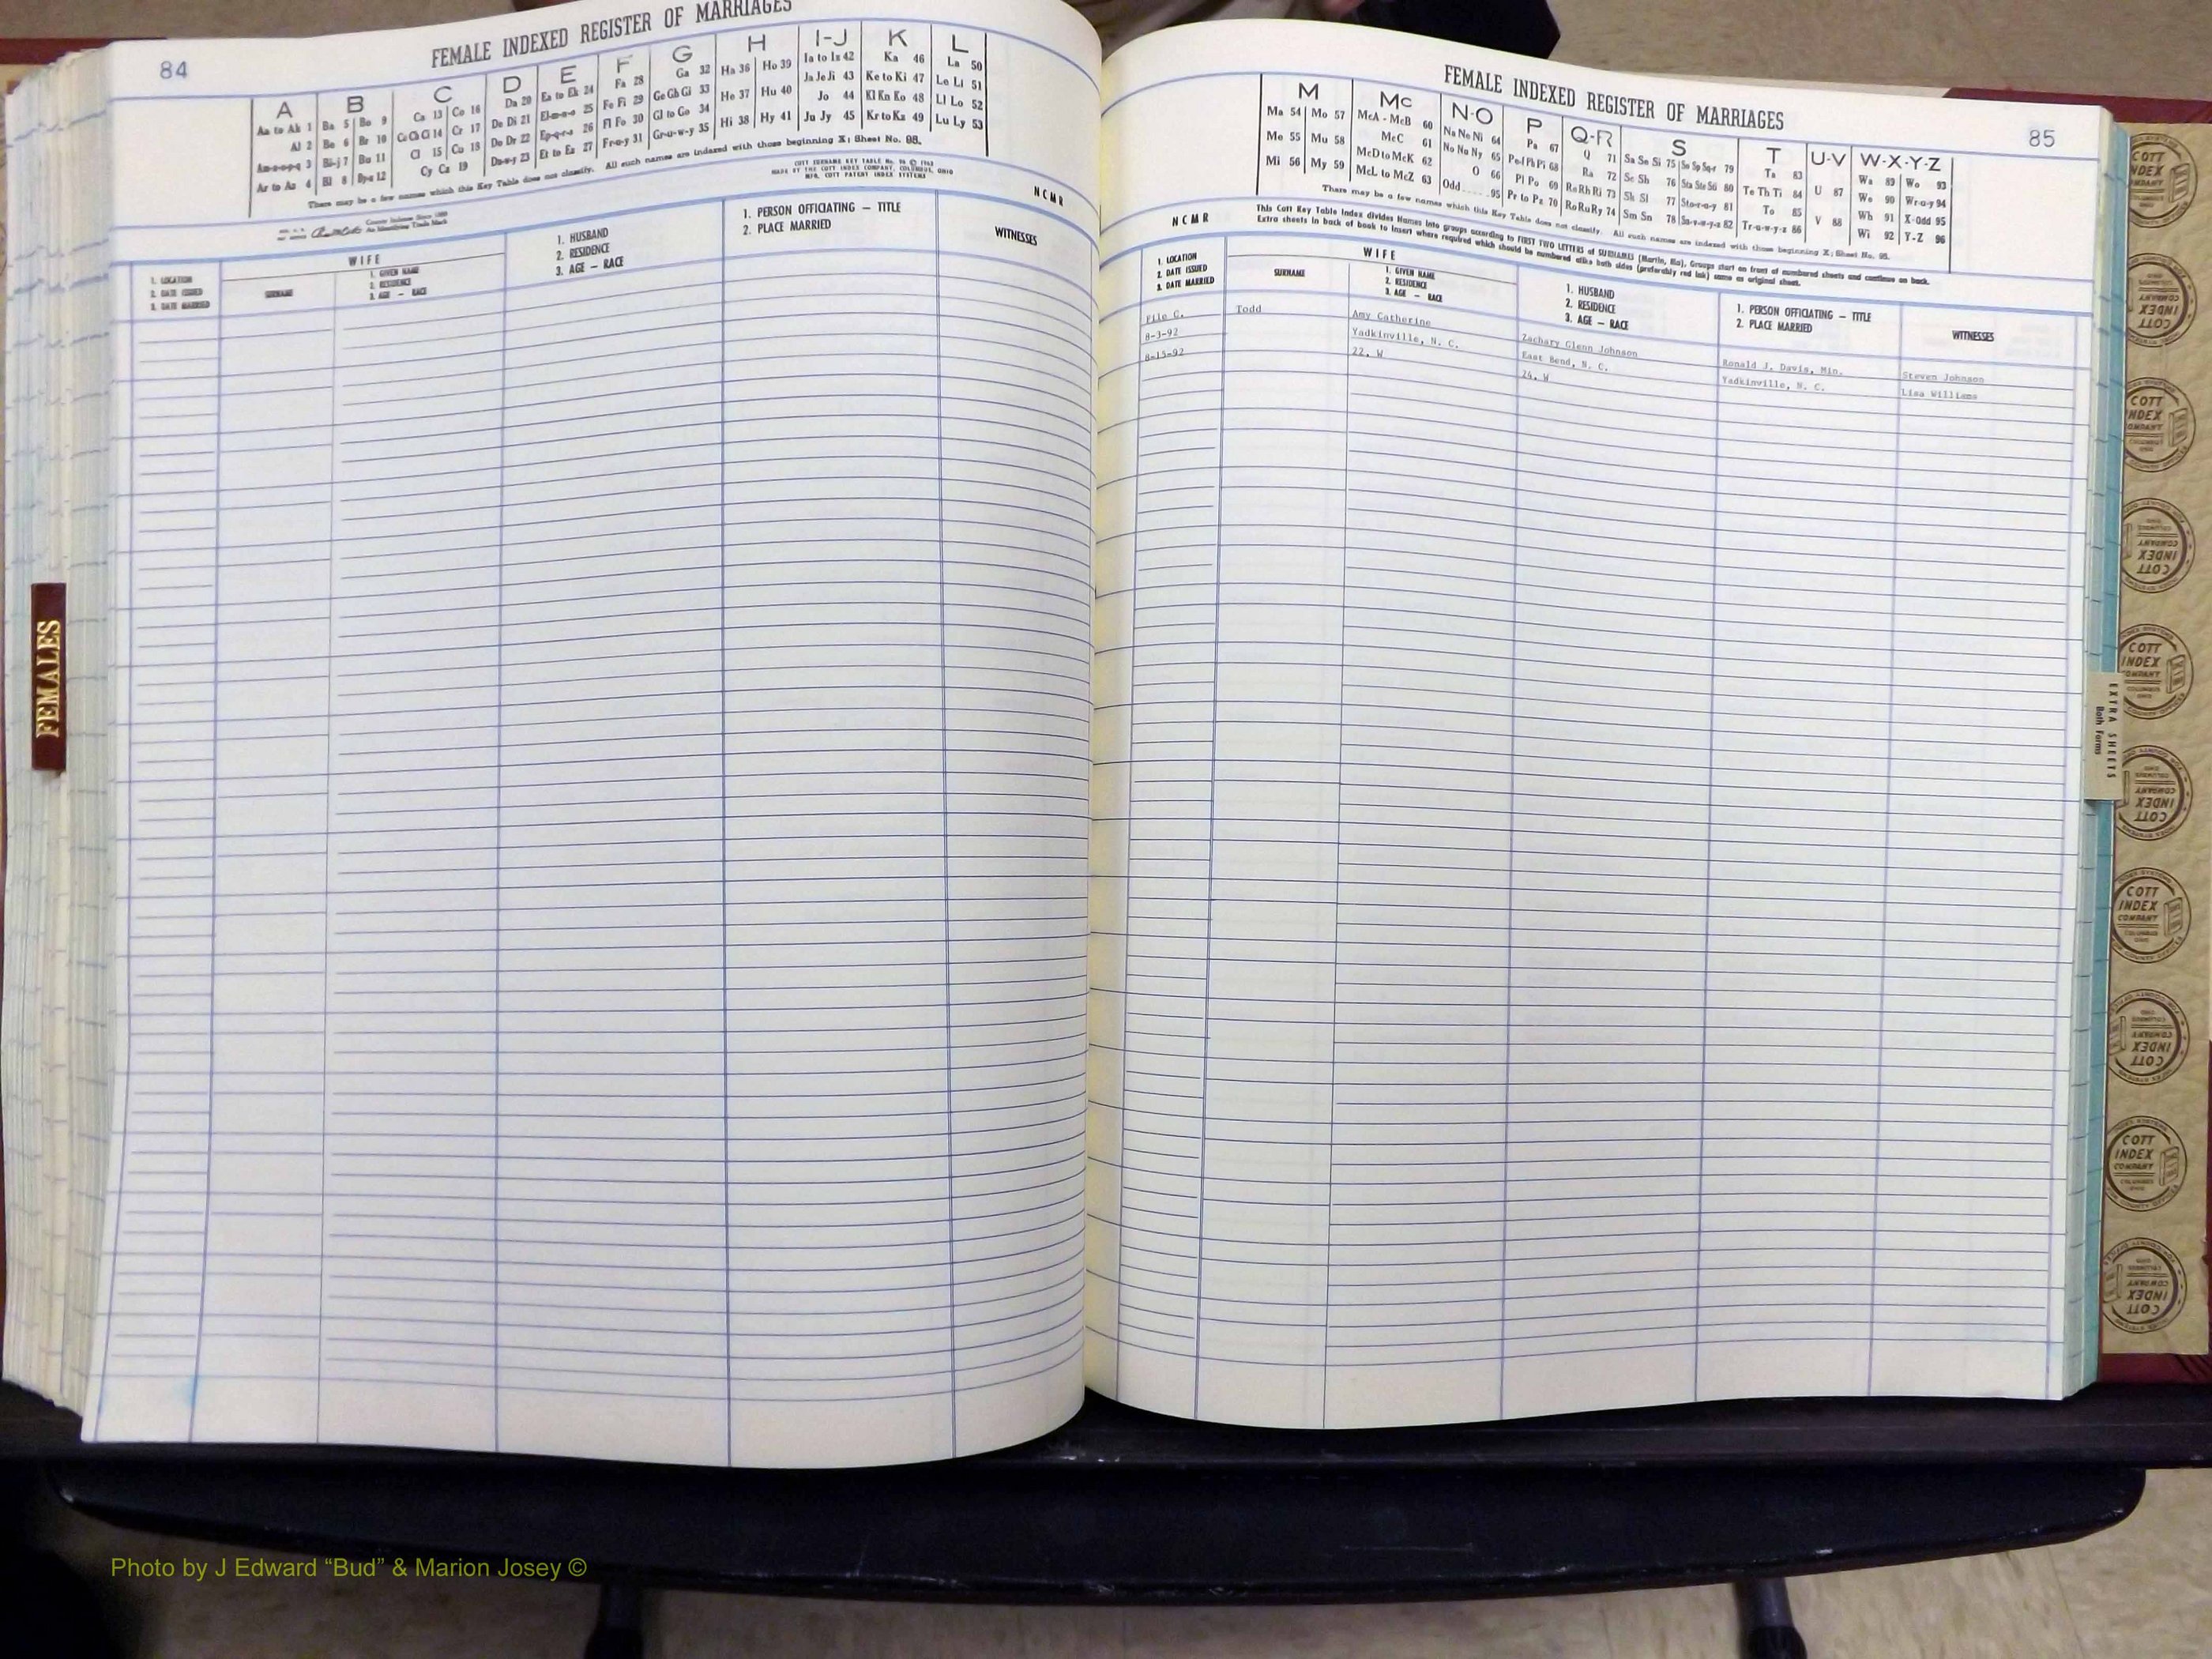 84
FEMALE INDEXED REGISTER OF MARRIAGES
A B C D E F G H I-J K L
Aa to Ak 1 Ba 5 Bo 9 Ca 13 Co 16 Da 20 Ea to Ek 24 Fa 28 Ga 32 Ha 36 Ho 39 Ia to Iz 42 Ka 46 La 50
Al 2 Be 6 Br 10 Ce Ch Ci 14 Cr 17 De Di 21 El-m-n-o 25 Fe Fi 29 Ge Gh Gi 33 He 37 Hu 40 Ja Je Ji 43 Ke to Ki 47 Le Li 51
Am-n-o-p-q 3 Bi-j 7 Bu 11 Cl 15 Cu 18 Do Dr 22 Ep-q-r-s 26 Fl Fo 30 Gl to Go 34 Hi 38 Hy 41 Jo 44 Kl Kn Ko 48 Ll Lo 52
Ar to Az 4 Bl 8 By-z 12 Cy Cz 19 Du-w-y 23 Et to Ez 27 Fr-u-y 31 Gr-u-w-y 35 Ju Jy 45 Kr to Kz 49 Lu Ly 53
There may be a few names which this Key Table does not classify. All such names are indexed with those beginning X; Sheet No. 95.
MADE BY THE COTT INDEX COMPANY, COLUMBUS, OHIO
MFG. COTT PATENT INDEX SYSTEMS
County Indexes Since 1888
An Identifying Trade Mark
NCMR
1. LOCATION
2. DATE ISSUED
3. DATE MARRIED
WIFE
SURNAME
1. GIVEN NAME
2. RESIDENCE
3. AGE — RACE
1. HUSBAND
2. RESIDENCE
3. AGE — RACE
1. PERSON OFFICIATING — TITLE
2. PLACE MARRIED
WITNESSES
FEMALES
FEMALE INDEXED REGISTER OF MARRIAGES
85
M Mc N-O P Q-R S T U-V W-X-Y-Z
Ma 54 Mo 57 McA - McB 60 Na Ne Ni 64 Pa 67 Q 71 Sa Se Si 75 So Sp Sq-r 79 Ta 83 U 87 Wa 89 Wo 93
Me 55 Mu 58 McC 61 No Nu Ny 65 Pe-f Ph Pi 68 Ra 72 Sc Sh 76 Sta Ste Sti 80 Te Th Ti 84 V 88 We 90 Wr-u-y 94
Mi 56 My 59 McD to McK 62 O 66 Pl Po 69 Re Rh Ri 73 Sk Sl 77 Sto-r-u-y 81 To 85 Wh 91 X-Odd 95
McL to McZ 63 Odd 95 Pr to Pz 70 Ro Ru Ry 74 Sm Sn 78 Su-v-w-y-z 82 Tr-u-w-y-z 86 Wi 92 Y-Z 96
There may be a few names which this Key Table does not classify. All such names are indexed with those beginning X; Sheet No. 95.
This Cott Key Table Index divides Names into groups according to FIRST TWO LETTERS of SURNAMES (Martin, Ma), Groups start on front of numbered sheets and continue on back.
Extra sheets in back of book to insert where required which should be numbered alike both sides (preferably red ink) same as original sheet.
NCMR
1. LOCATION
2. DATE ISSUED
3. DATE MARRIED
WIFE
SURNAME
1. GIVEN NAME
2. RESIDENCE
3. AGE — RACE
1. HUSBAND
2. RESIDENCE
3. AGE — RACE
1. PERSON OFFICIATING — TITLE
2. PLACE MARRIED
WITNESSES
File C. Todd Amy Catherine Zachary Glenn Johnson Ronald J. Davis, Min. Steven Johnson
8-3-92 Yadkinville, N. C. East Bend, N. C. Yadkinville, N. C. Lisa Williams
8-15-92 22, W 24, W
EXTRA SHEETS
Both Forms
COTT
INDEX
COMPANY
COTT
INDEX
COMPANY
COTT
INDEX
COMPANY
COTT
INDEX
COMPANY
COTT
INDEX
COMPANY
COTT
INDEX
COMPANY
COTT
INDEX
COMPANY
COTT
INDEX
COMPANY
COTT
INDEX
COMPANY
COTT
INDEX
COMPANY
Photo by J Edward “Bud” & Marion Josey ©